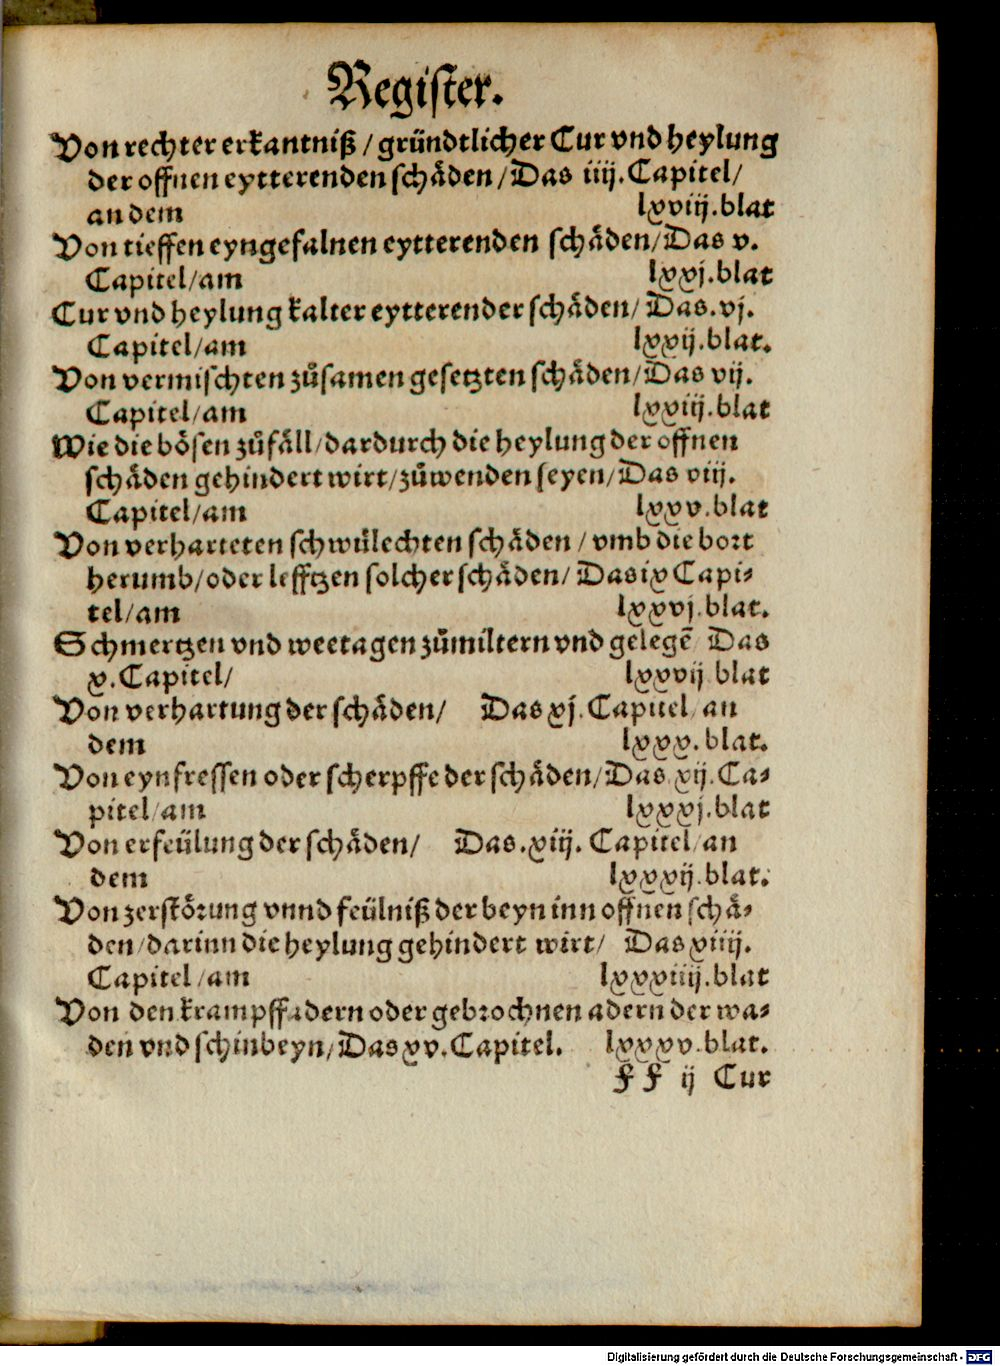 Register.
Von rechter erkantniß / gründtlicher Cur vnd heylung
der offnen eytterenden schäden / Das iiij. Capitel /
an dem lxviij. blat
Von tieffen eyngefalnen eytterenden schäden / Das v.
Capitel / am lxxj. blat
Cur vnd heylung kalter eytterender schäden / Das. vj.
Capitel / am lxxij. blat.
Von vermischten zůsamen gesetzten schäden / Das vij.
Capitel / am lxxiij. blat
Wie die bösen zůfäll / dardurch die heylung der offnen
schäden gehindert wirt / zůwenden seyen / Das viij.
Capitel / am lxxv. blat
Von verharteten schwülechten schäden / vmb die bort
herumb / oder lefftzen solcher schäden / Das ix Capi⸗
tel / am lxxvj. blat.
Schmertzen vnd weetagen zůmiltern vnd gelegē Das
x. Capitel / lxxvij blat
Von verhartung der schäden / Das xj. Capitel an
dem lxxx. blat.
Von eynfressen oder scherpffe der schäden / Das xij. Ca⸗
pitel / am lxxxj. blat
Von erfeülung der schäden / Das. xiij. Capitel / an
dem lxxxij. blat.
Von zerstörung vnnd feülniß der beyn inn offnen schä⸗
den / darinn die heylung gehindert wirt / Das xiiij.
Capitel / am lxxxiiij. blat
Von den krampffadern oder gebrochnen adern der wa⸗
den vnd schinbeyn / Das xv. Capitel. lxxxv. blat.
ij Cur
Digitalisierung gefördert durch die Deutsche Forschungsgemeinschaft - DFG